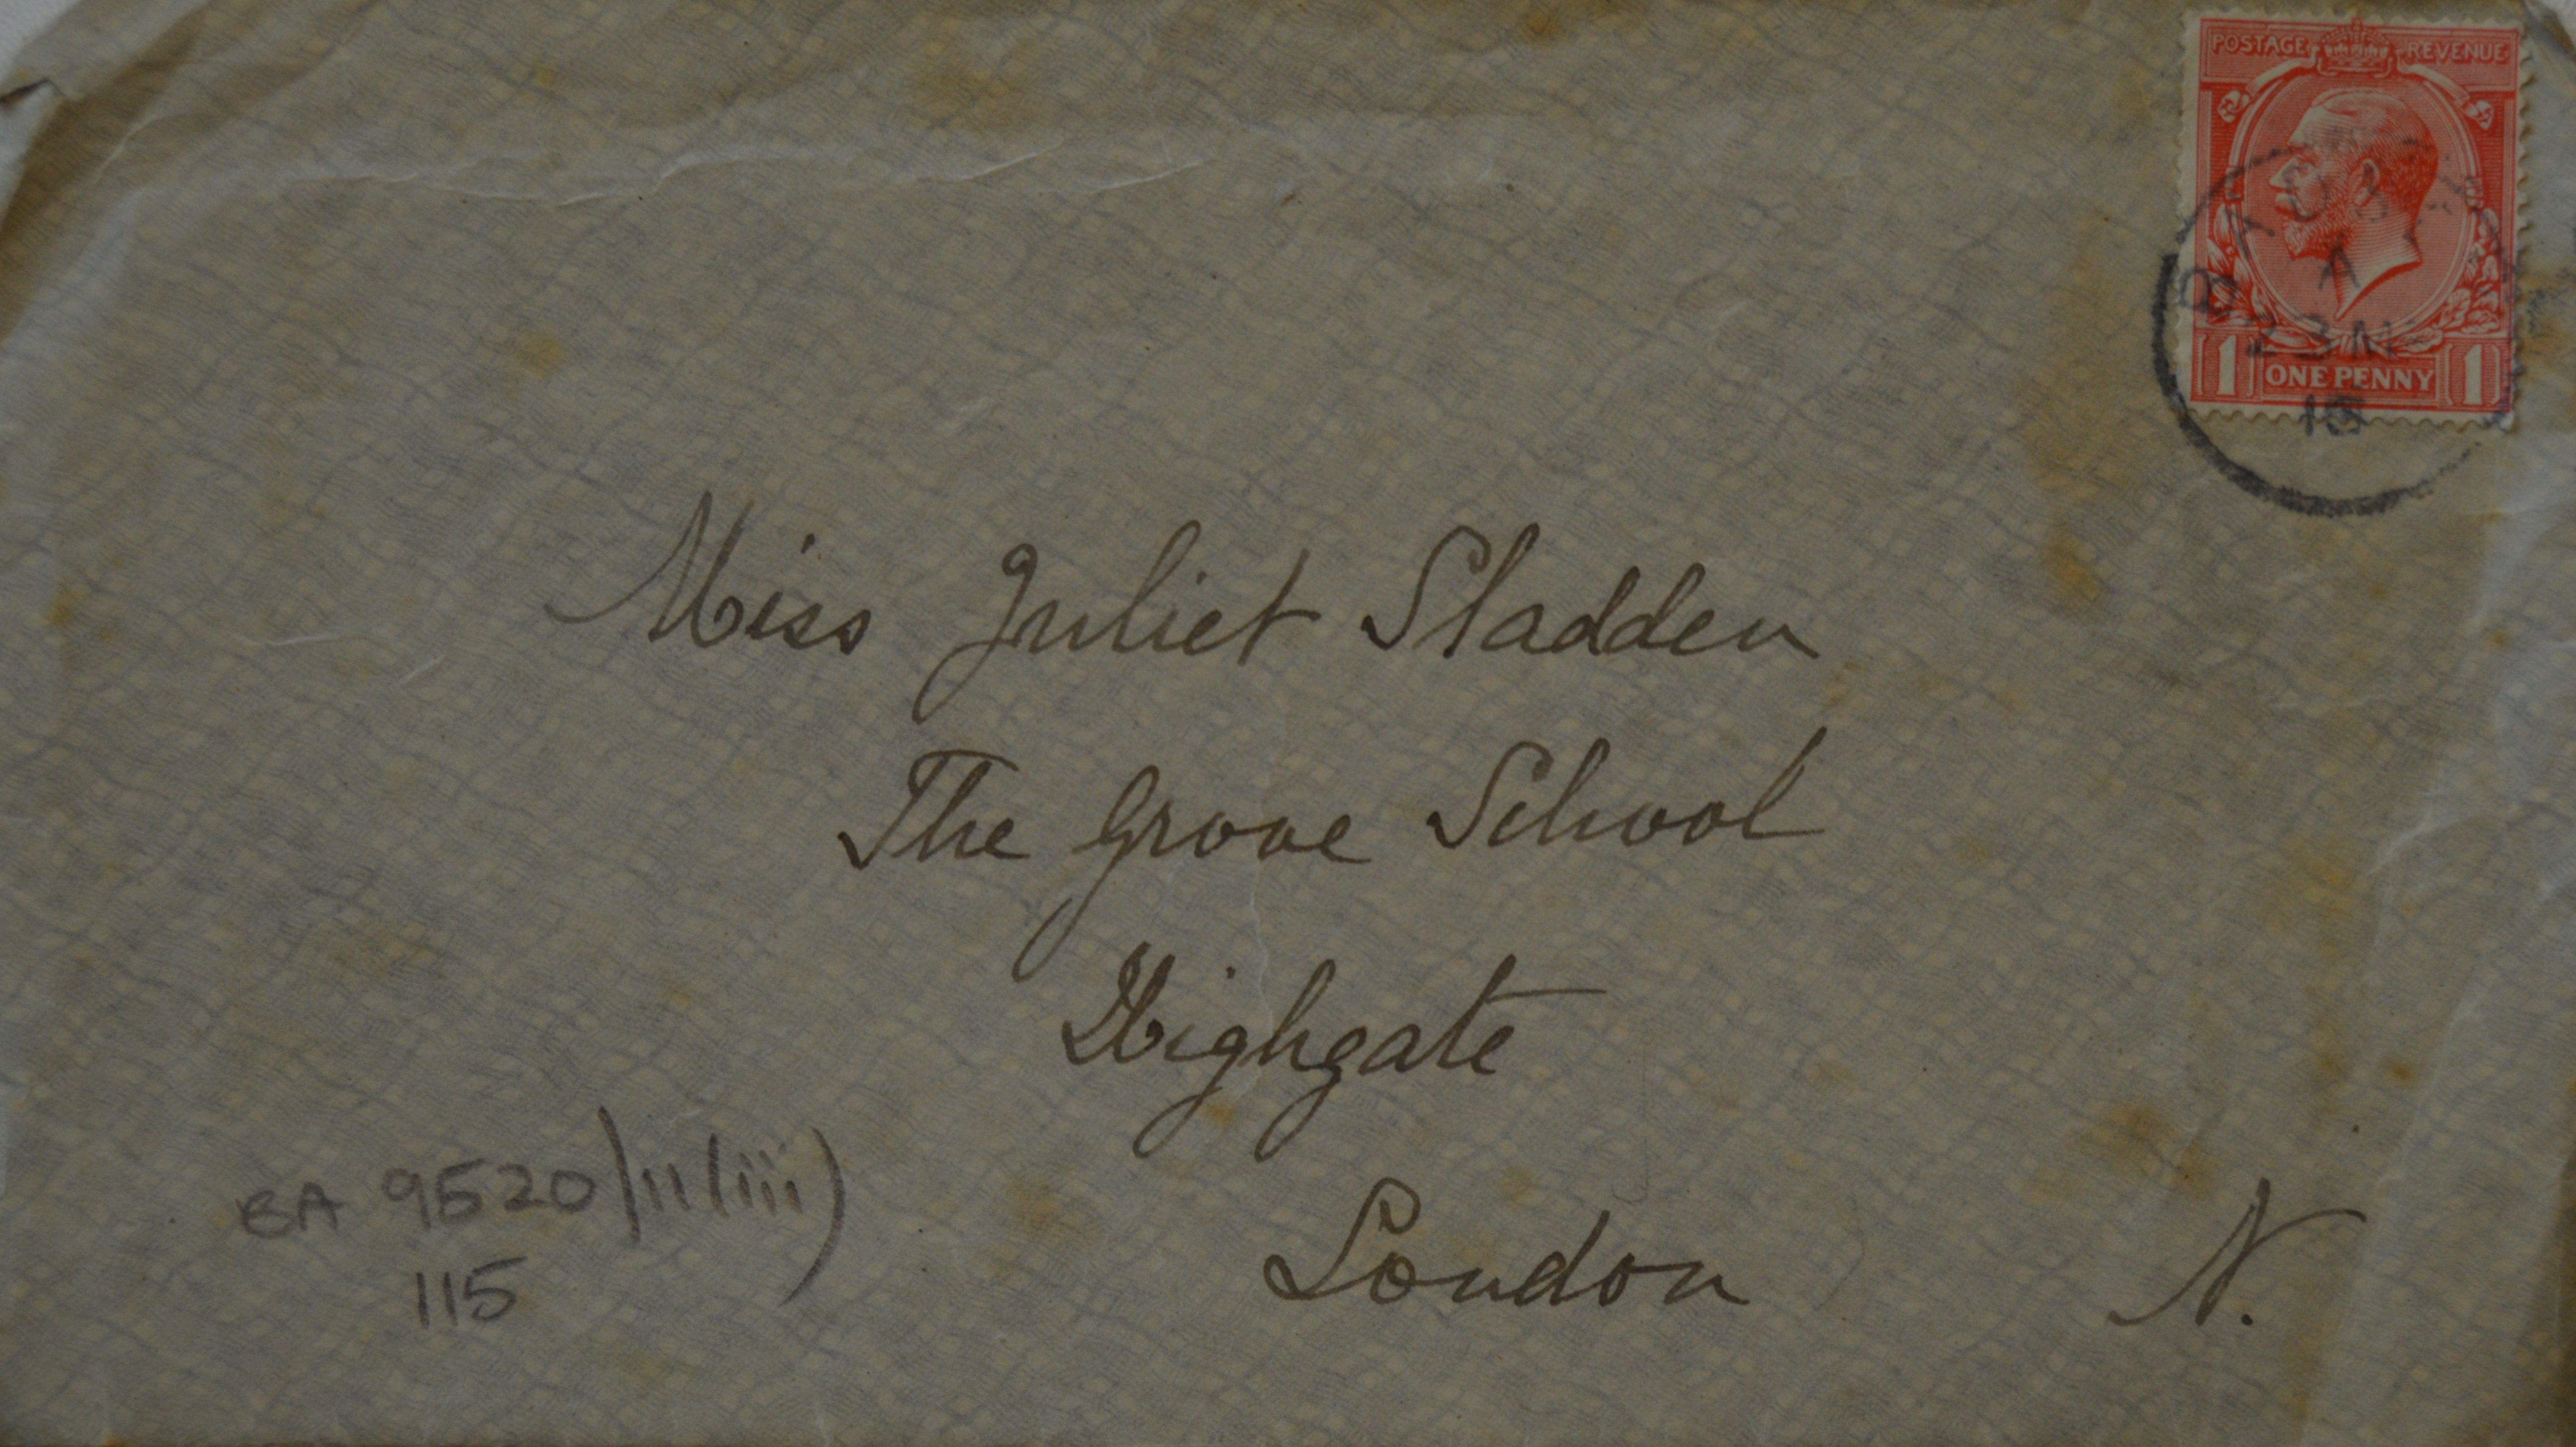 POSTAGE REVENUE
A
23 N
15
1 ONE PENNY 1
Miss Juliet Sladden
The Grove School
Highgate
London N.
BA 9520/11(iii)
115